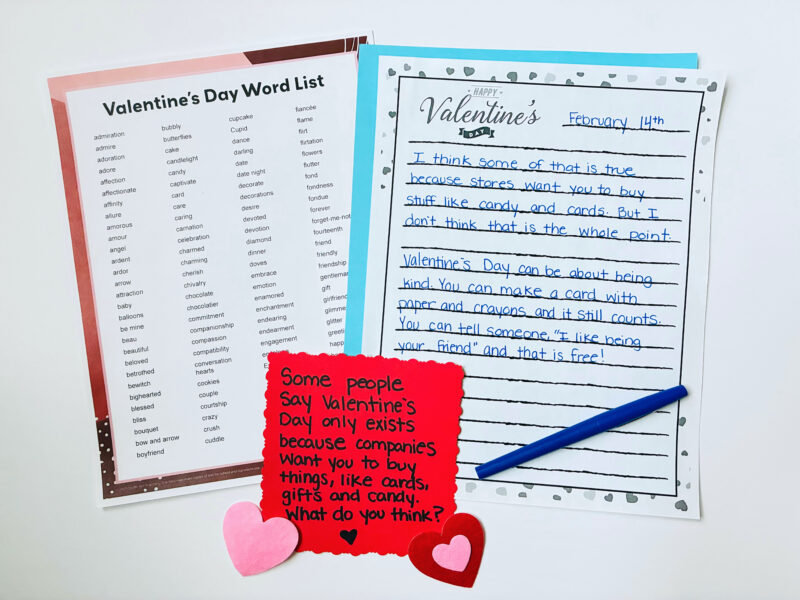 Valentine's Day Word List
admiration
admire
adoration
adore
affection
affectionate
affinity
allure
amorous
amour
angel
ardent
ardor
arrow
attraction
baby
balloons
be mine
beau
beautiful
beloved
betrothed
bewitch
bighearted
blessed
bliss
bouquet
bow and arrow
boyfriend
bubbly
butterflies
cake
candlelight
candy
captivate
card
care
caring
carnation
celebration
charmed
charming
cherish
chivalry
chocolate
chocolatier
commitment
companionship
compassion
compatibility
conversation
hearts
cookies
couple
courtship
crazy
crush
cuddle
cupcake
Cupid
dance
darling
date
date night
decorate
decorations
desire
devoted
devotion
diamond
dinner
doves
embrace
emotion
enamored
enchantment
endearing
endearment
engagement
fiancée
flame
flirt
flirtation
flowers
flutter
fond
fondness
fondue
forever
forget-me-not
fourteenth
friend
friendly
friendship
gift
glitter
HAPPY
Valentine's
DAY
February 14th
I think some of that is true
because stores want you to buy
stuff like candy and cards. But I
don't think that is the whole point.
Valentine's Day can be about being
kind. You can make a card with
paper and crayons and it still counts.
You can tell someone, "I like being
your friend" and that is free!
Some people
Say Valentine's
Day only exists
because companies
want you to buy
things, like cards,
gifts and candy.
What do you think?